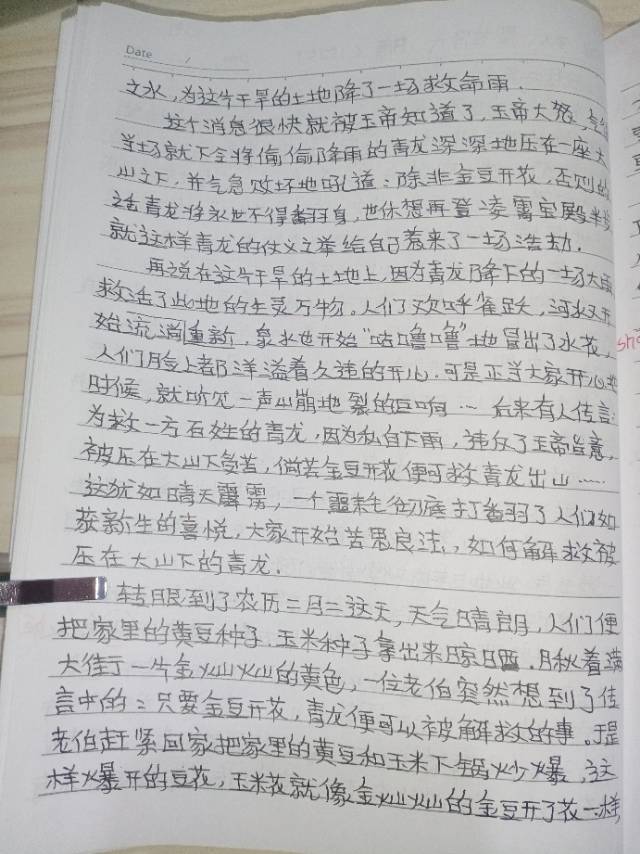 Date /
之水，为这片干旱的土地降了一场救命雨．
这个消息很快就被玉帝知道了，玉帝大怒，
当场就下令将偷偷降雨的青龙深深地压在一座大
山之下．并气急败坏地吼道：除非金豆开花，否则的
话青龙将永世不得翻身，也休想再登凌霄宝殿半步
就这样青龙的仗义之举给自己惹来了一场浩劫．
再说在这片干旱的土地上，因为青龙降下的一场大雨
救活了此地的生灵万物。人们欢呼雀跃，河水又开
始流淌重新，泉水也开始"咕噜噜"地冒出了水花，
人们脸上都洋溢着久违的开心．可是正当大家开心
时候，就听见一声山崩地裂的巨响…后来有人传言：
为救一方百姓的青龙，因为私自下雨，违反了玉帝旨意，
被压在大山下受苦，倘若金豆开花便可救青龙出山……
这犹如晴天霹雳，一个噩耗彻底打翻了人们如
获新生的喜悦，大家开始苦思良法，如何解救被
压在大山下的青龙．
转眼到了农历二月二这天，天气晴朗，人们便
把家里的黄豆种子、玉米种子拿出来晾晒．月秋着满
大街于一片金灿灿的黄色，一位老伯突然想到了传
言中的：只要金豆开花，青龙便可以被解救的事。于是
老伯赶紧回家把家里的黄豆和玉米下锅炒爆，这
样爆开的豆花，玉米花就像金灿灿的金豆开了花一样，